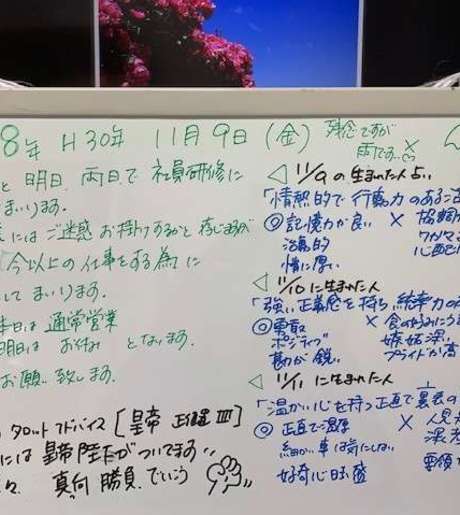 8年 H30年 11月9日(金) 残念ですが
雨です
と 明日、両日で 社員研修に
まいります。
には ご迷惑 お掛けするかと 存じますが
今以上の仕事をする為に
して まいります。
本日は 通常営業
明日は お休み となます。
お願い致します。
タロットアドバイス [皇帝 正位置 Ⅲ]
には 皇帝陛下がついてます
真向勝負 でいこう
◁ 11/9の生まれた人占い
「情熱的で 行動力のある
◎ 記憶力が良い ×
活動的
情に厚い
◁ 11/10に生まれた人
「強い正義感を持ち 統率力の
◎ × 食の好みにう
ポジティブ 嫉妬深い
勘が鋭い プライドが高
◁ 11/11に生まれた人
「温かい心を持つ正直で 裏表の
◎ 正直で温厚 × 人見
細かい事は気にしない
好奇心旺盛